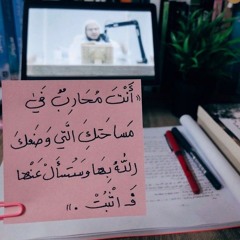 «أَنْتَ مُحَارِبٌ فِي
مَسَاحَتِكَ الَّتِي وَضَعَكَ
اللهُ بِهَا وَسَتُسْأَلُ عَنْهَا
فَـ اثْبُتْ .»